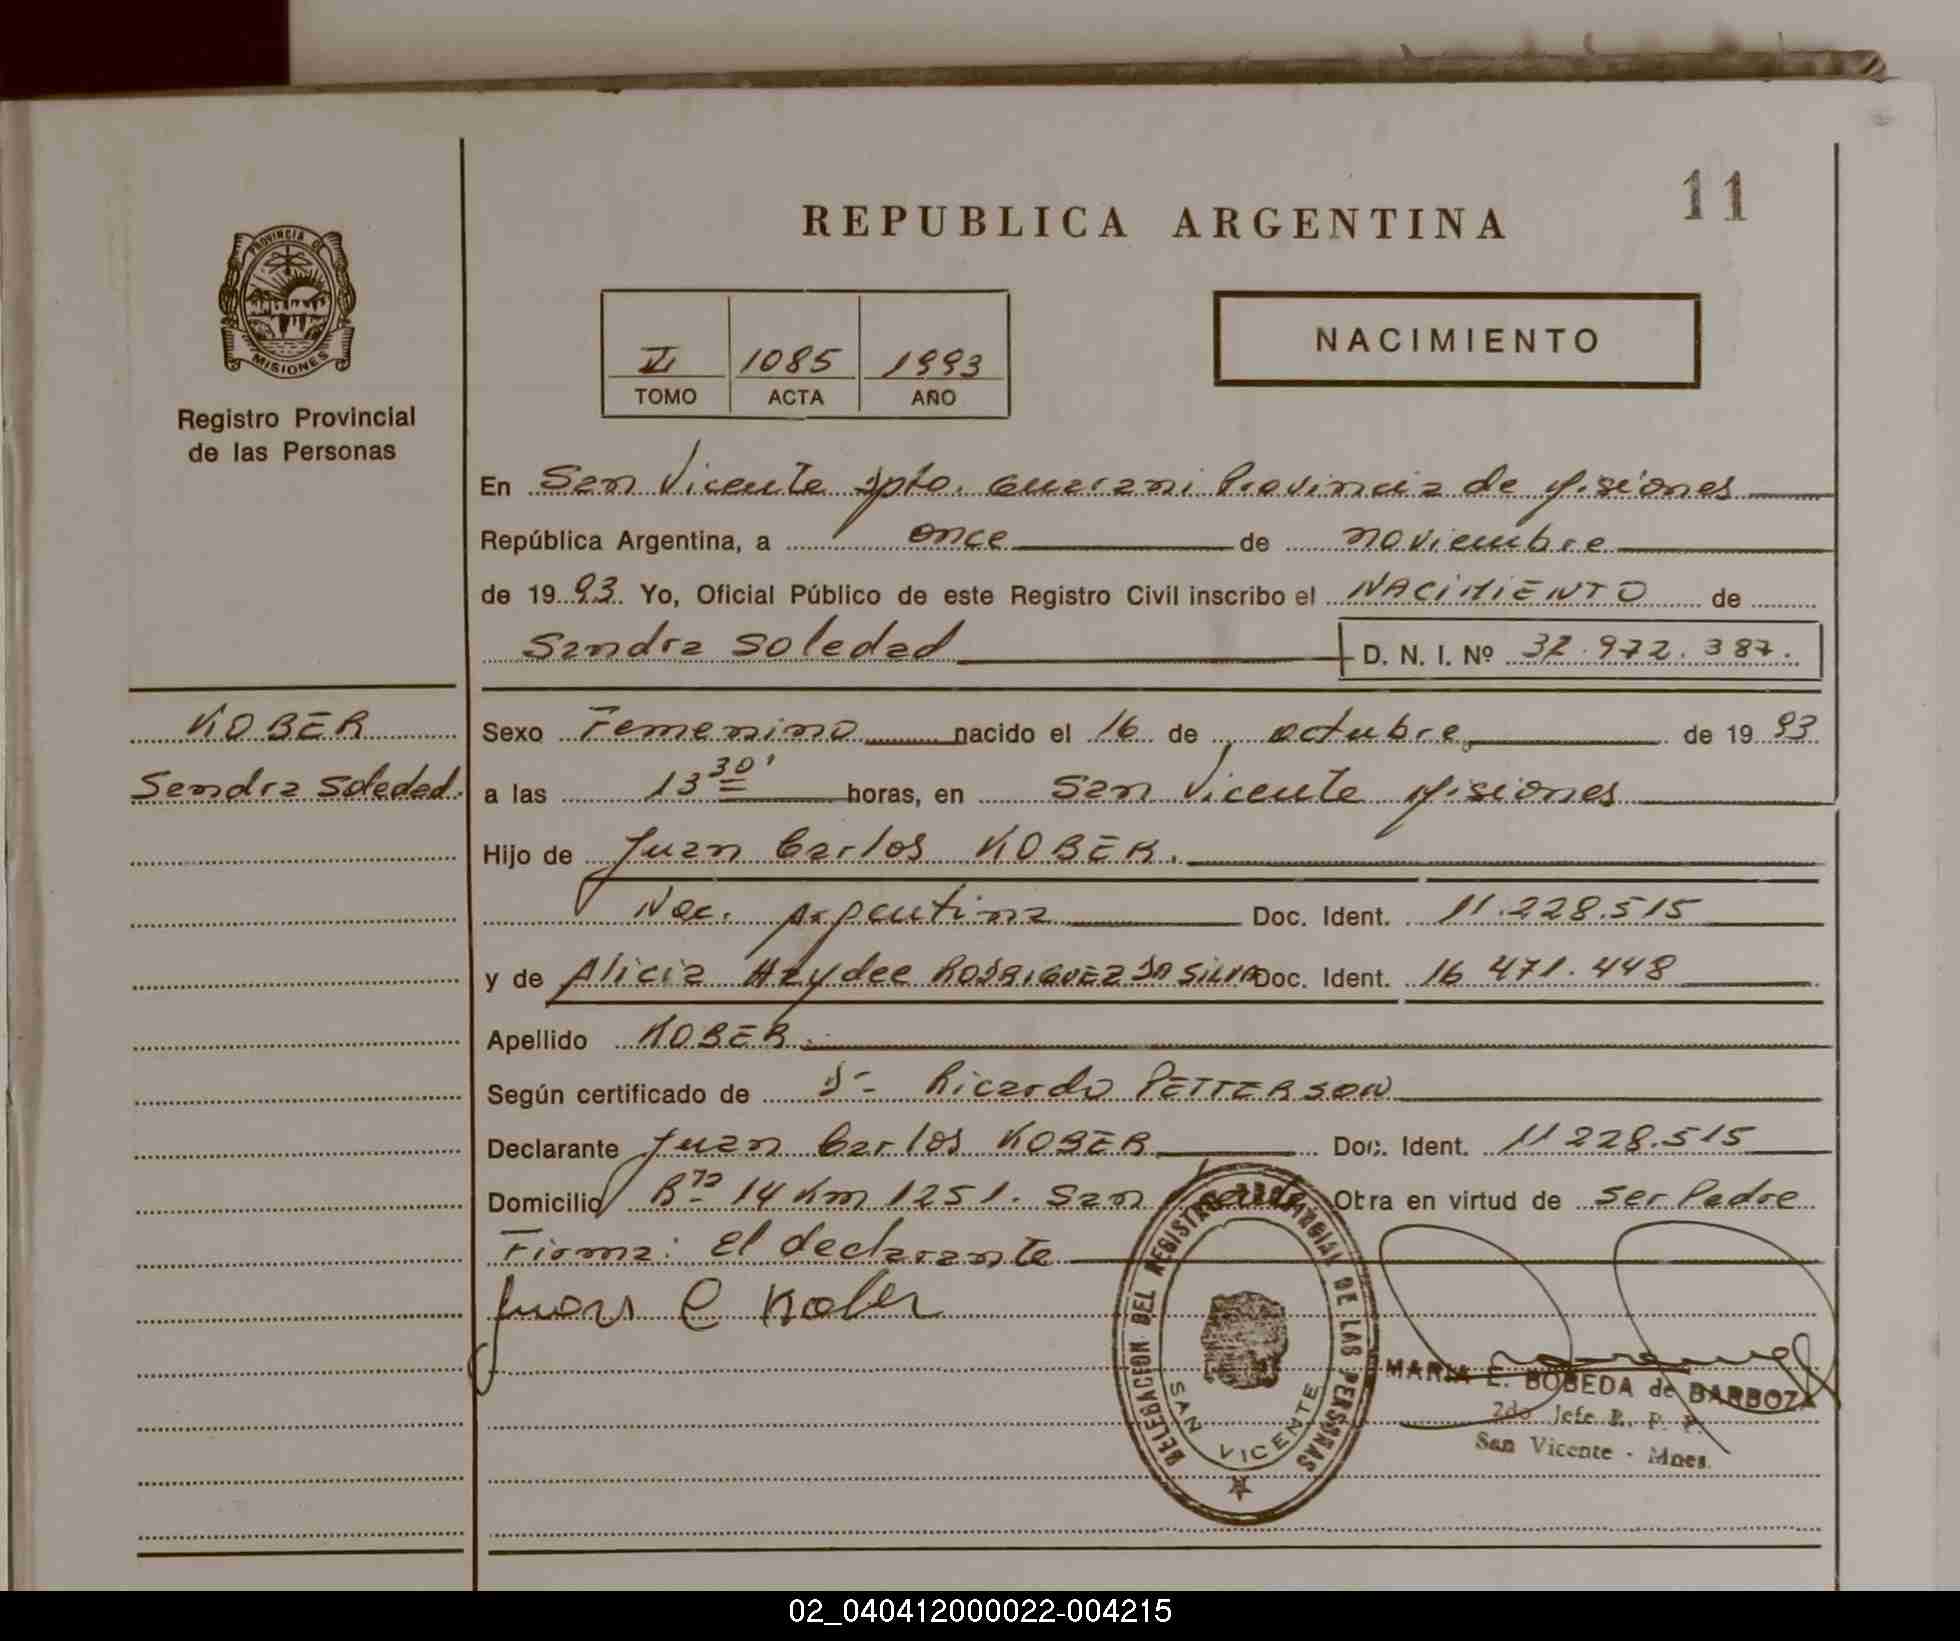 11
REPUBLICA ARGENTINA
PROVINCIA DE
MISIONES
Registro Provincial
de las Personas
VI 1085 1993
TOMO ACTA AÑO
NACIMIENTO
En San Vicente Dpto. Guarani Provincia de Misiones
República Argentina, a once de noviembre
de 1993. Yo, Oficial Público de este Registro Civil inscribo el NACIMIENTO de
Sandra Soledad D. N. I. Nº 37.972.387.
KOBER
Sandra Soledad.
Sexo Femenino nacido el 16 de octubre de 1993
a las 13 30' horas, en San Vicente Misiones
Hijo de Juan Carlos KOBER.
Nac. Argentina Doc. Ident. 11.228.515
y de Alicia Haydee RODRIGUEZ DA SILVA Doc. Ident. 16 471.448
Apellido KOBER.
Según certificado de Dr Ricardo PETTERSON
Declarante Juan Carlos KOBER Doc. Ident. 11 228.515
Domicilio Rta 14 Km 1251. San Vicente Otra en virtud de ser Padre
Firma: El declarante
Juan C Kober
DELEGACION DEL REGISTRO PROVINCIAL DE LAS PERSONAS
SAN VICENTE
MARIA E. BOBEDA de BARBOZA
2do Jefe R. P. P.
San Vicente - Mnes.
02_040412000022-004215